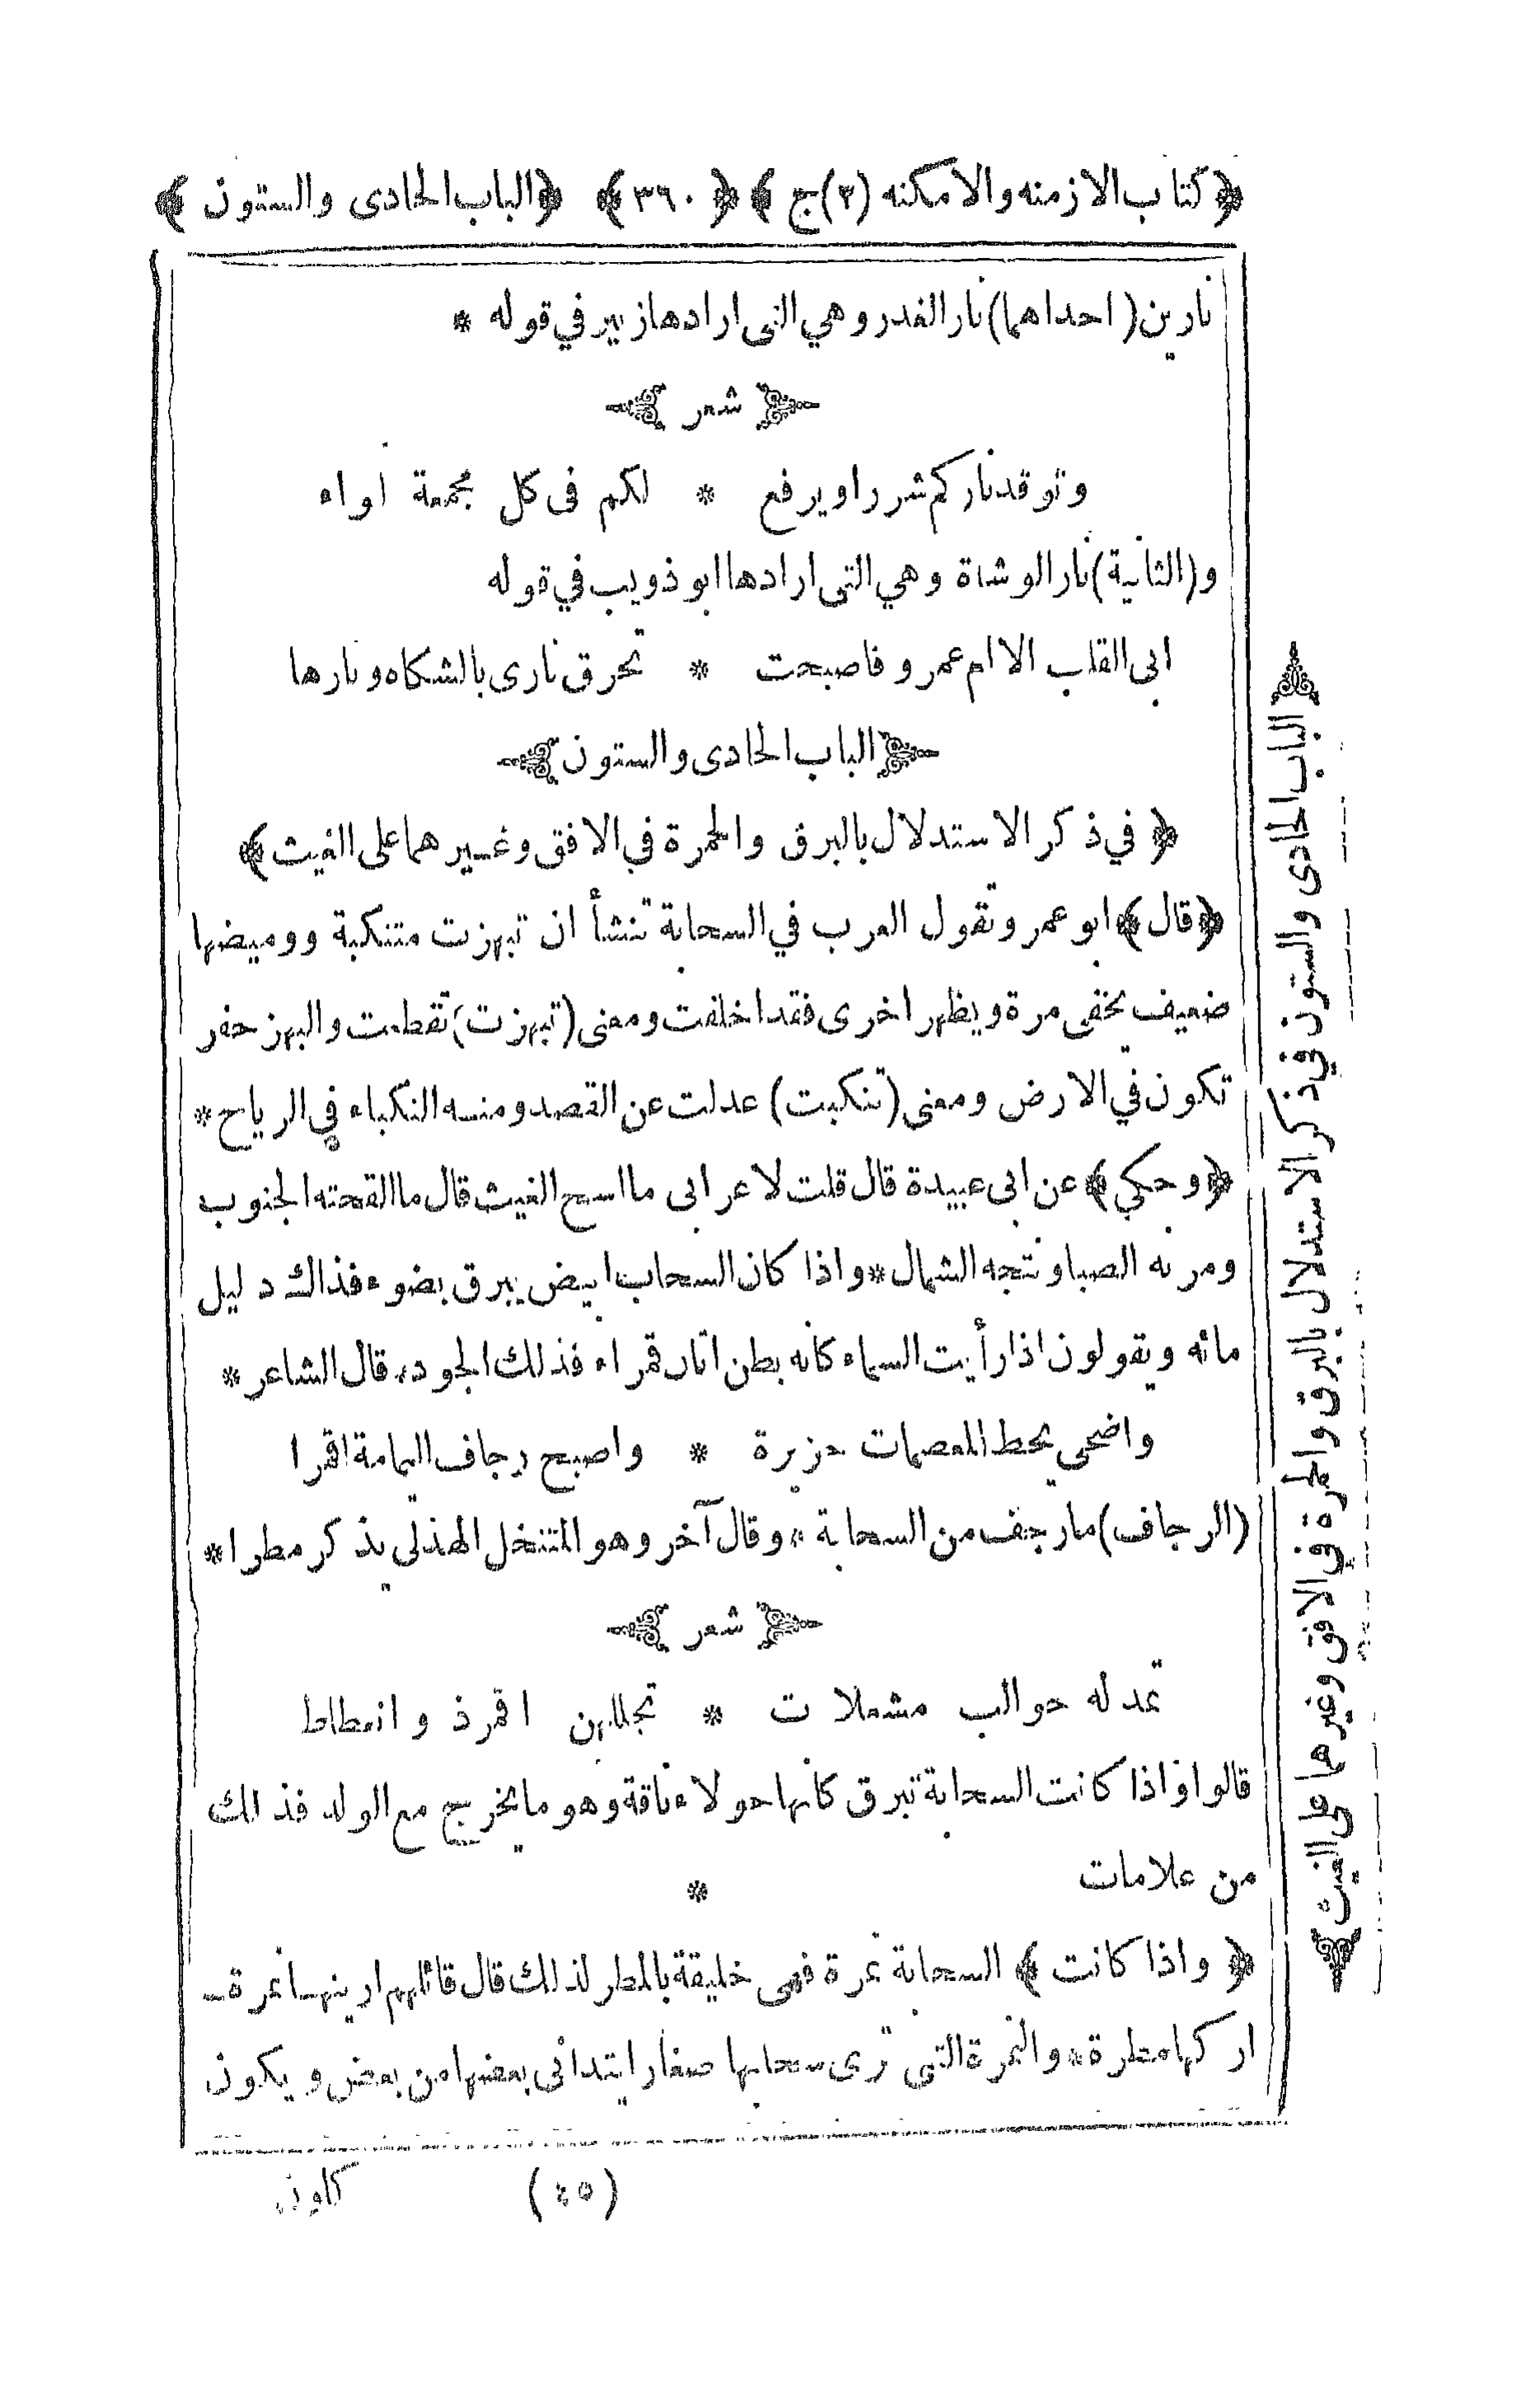 ﴿ كتاب الازمنه والامكنه (٢) ج ﴾ ﴿ ٣٦٠ ﴾ ﴿ الباب الحادى والستون ﴾
نارين (احداهما) نار الغدر وهي التى ارادها زهير في قوله *
شعر
وتوقد ناركم شررا ويرفع * لكم فى كل مجمعة لواء
و(الثانية) نار الوشاة وهي التى ارادها ابو ذويب في قوله
ابى القلب الا ام عمرو فاصبحت * تحرق نارى بالشكاه ونارها
الباب الحادى والستون
﴿ في ذكر الاستدلال بالبرق والحمرة في الافق وغيرهما على الغيث ﴾
﴿ قال ﴾ ابو عمر وتقول العرب في السحابة تنشأ ان تبهزت متنكبة ووميضها
ضعيف يخفى مرة ويظهر اخرى فقد اخلفت ومعنى (تبهزت) تقطعت والبهز حفر
تكون في الارض ومعنى (تنكبت) عدلت عن القصد ومنه النكباء في الرياح *
﴿ وحكي ﴾ عن ابى عبيدة قال قلت لاعرابى ما اسح الغيث قال ما القحته الجنوب
ومرته الصبا ونتجه الشمال * واذا كان السحاب ابيض يبرق بضوء فذاك دليل
مائه ويقولون اذا رأيت السماء كانه بطن اتان قمراء فذلك الجود * قال الشاعر *
واضحى يحط المعصمات حزيرة * واصبح رجاف اليمامة اقمرا
(الرجاف) ما رجف من السحابة * وقال آخر وهو المتنخل الهذلى يذكر مطرا *
شعر
تمد له حوالب مشعلات * تجللهن اقمر ذو انعطاط
قالوا واذا كانت السحابة تبرق كانها حولاء ناقة وهو ما يخرج مع الولد فذلك
من علامات *
﴿ واذا كانت ﴾ السحابة نمرة فهى خليقة بالمطر لذلك قال قائلهم ارينها نمرة ـ
اركها مطرة * والنمرة التى ترى سحابها صغارا يتدانى بعضها من بعض ويكون
(٤٥) كلون
الباب الحادى والستون في ذكر الاستدلال بالبرق والحمرة في الافق وغيرهما على الغيث